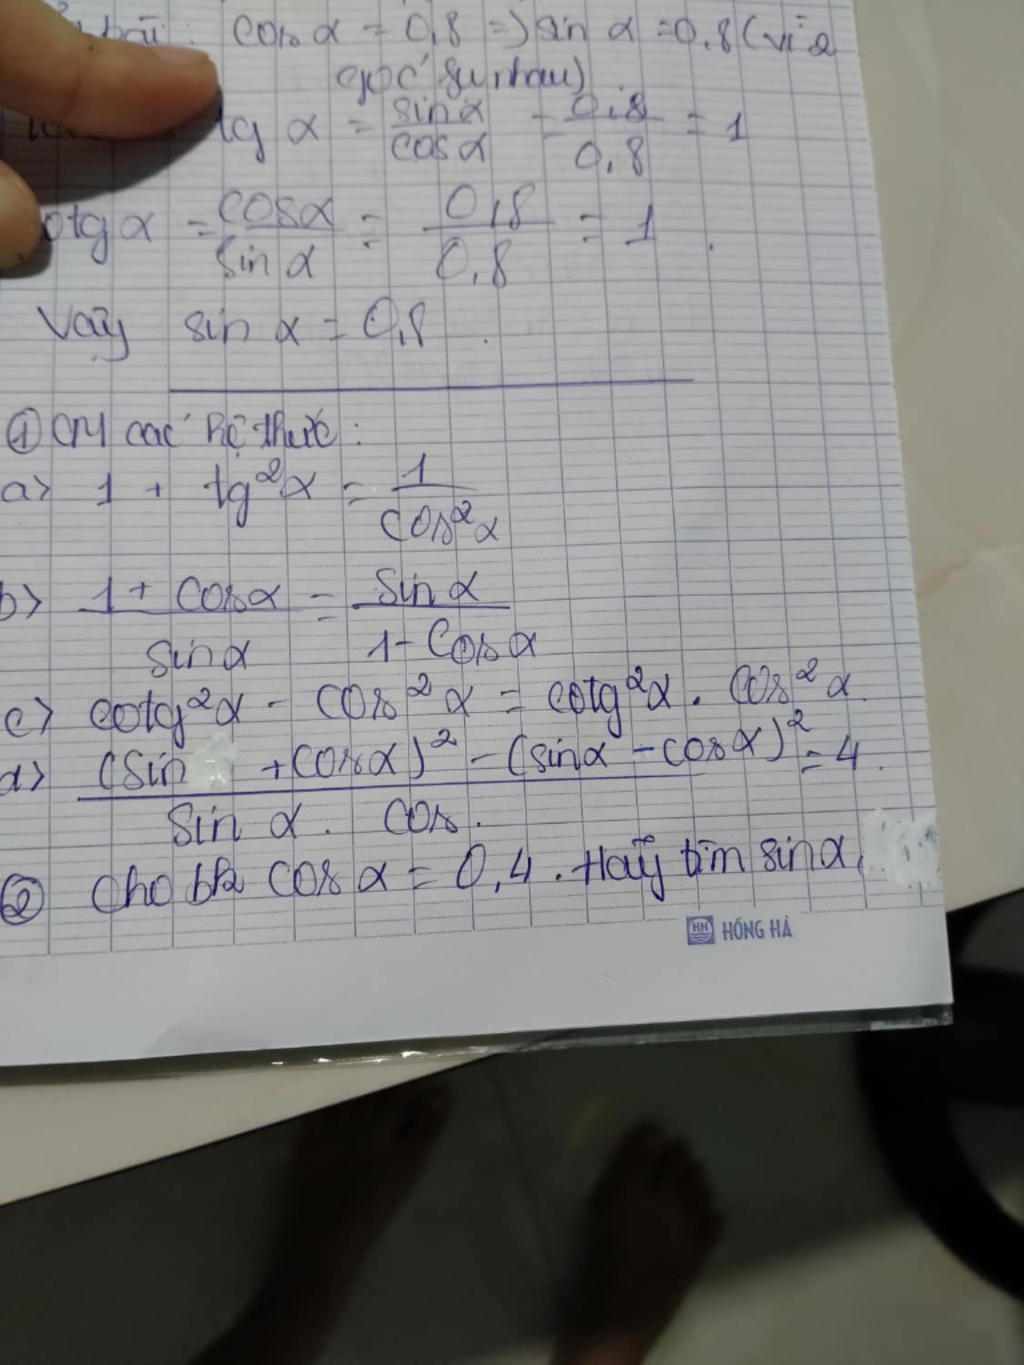 bài: cos α = 0,8 => sin α = 0,8 (vì 2
góc
tg α = sin α / cos α = 0,8 / 0,8 = 1
otg α = cos α / sin α = 0,8 / 0,8 = 1
Vậy sin α = 0,8.
① CM các hệ thức:
a> 1 + tg²α = 1 / cos²α
b> 1 + cos α / sin α = sin α / 1 - cos α
c> cotg²α - cos²α = cotg²α . cos²α
d> (sin + cos α)² - (sin α - cos α)² / sin α . cos. = 4.
② Cho biết cos α = 0,4. Hãy tìm sin α,
HH HỒNG HÀ